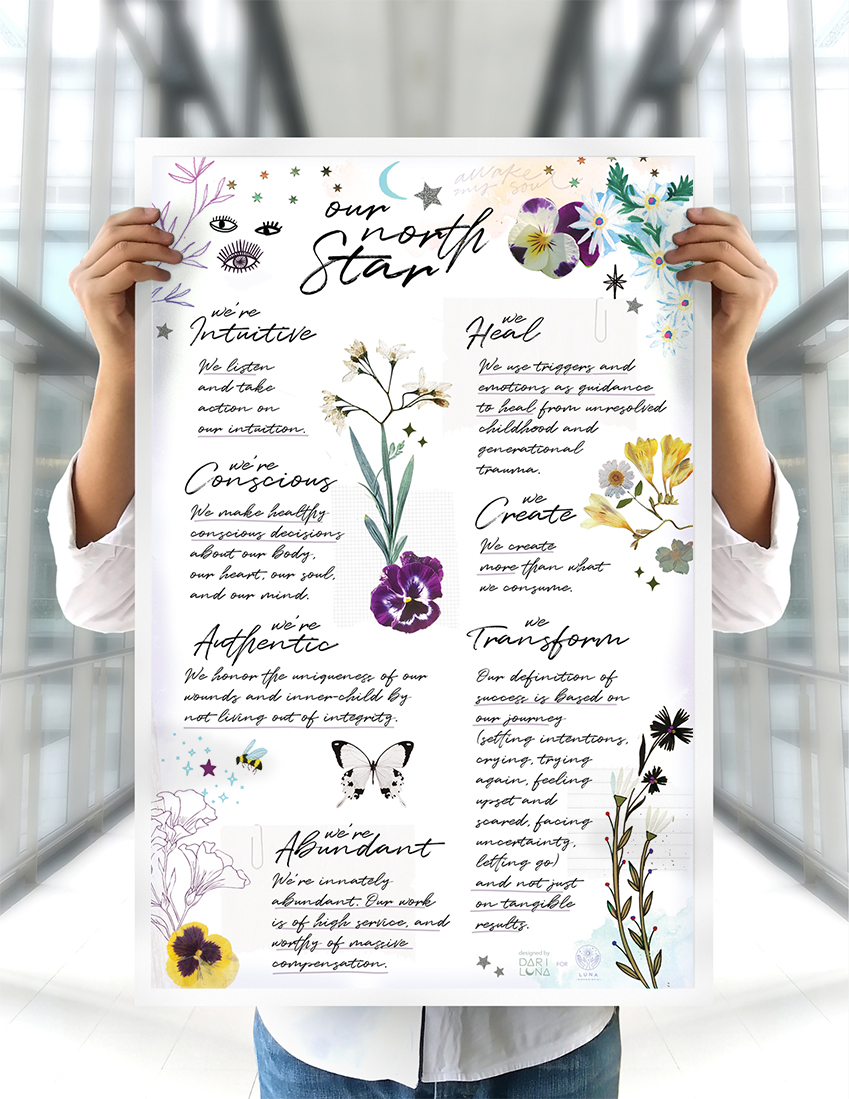 awake
my soul
our
north
Star
we're
Intuitive
We listen
and take
action on
our intuition.
we're
Conscious
We make healthy
conscious decisions
about our body,
our heart, our soul,
and our mind.
we're
Authentic
We honor the uniqueness of our
wounds and inner-child by
not living out of integrity.
we're
Abundant
We're innately
abundant. Our work
is of high service, and
worthy of massive
compensation.
we
Heal
We use triggers and
emotions as guidance
to heal from unresolved
childhood and
generational
trauma.
we
Create
We create
more than what
we consume.
we
Transform
Our definition of
success is based on
our journey
(setting intentions,
crying, trying
again, feeling
upset and
scared, facing
uncertainty,
letting go)
and not just
on tangible
results.
designed by
DARI
LUNA
FOR
LUNA